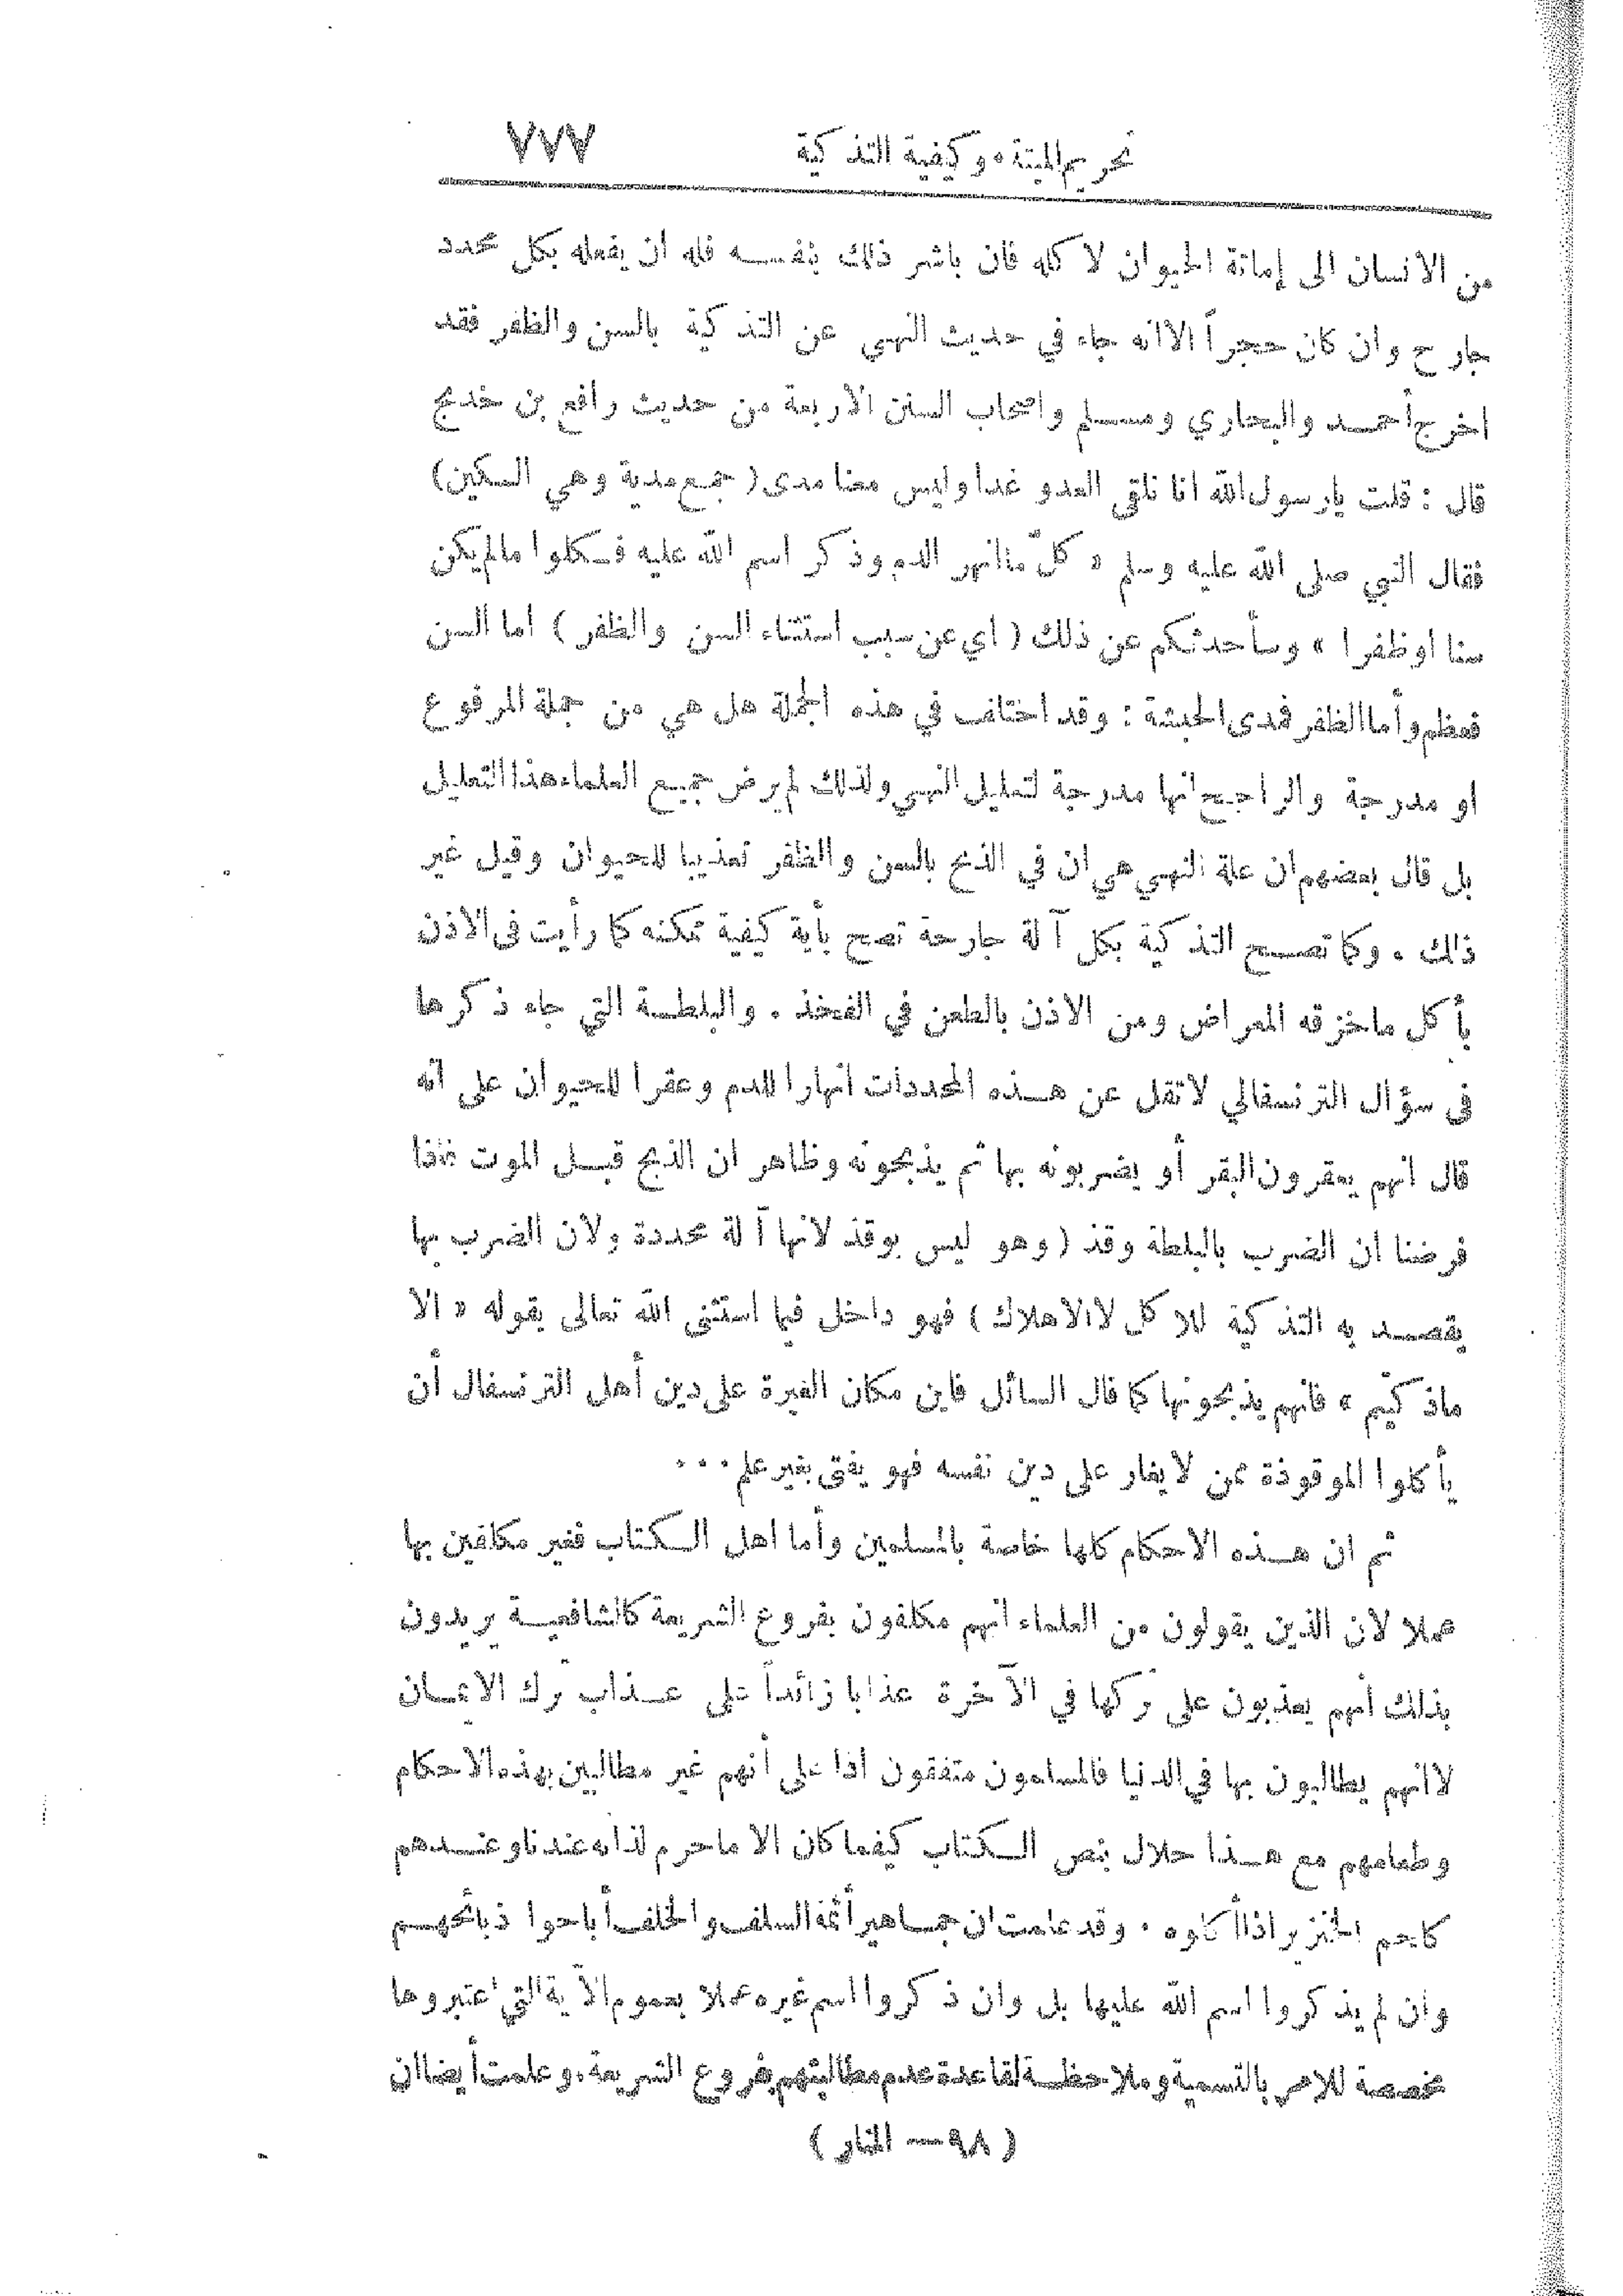 تحريم الميتة. وكيفية التذكية ٧٧٧
من الانسان الى إماتة الحيوان لأكله فان باشر ذلك بنفسه فله ان يفعله بكل محدد
جارح وان كان حجراً الا انه جاء في حديث النهي عن التذكية بالسن والظفر فقد
اخرج أحمد والبخاري ومسلم واصحاب السنن الأربعة من حديث رافع بن خديج
قال : قلت يارسول الله انا نلقى العدو غدا وليس معنا مدى ( جمع مدية وهي السكين)
فقال النبي صلى الله عليه وسلم « كلّ ما انهر الدم وذكر اسم الله عليه فكلوا مالم يكن
سنا او ظفرا » وسأحدثكم عن ذلك ( اي عن سبب استثناء السن والظفر ) اما السن
فعظم وأما الظفر فمدى الحبشة : وقد اختلف في هذه الجملة هل هي من جملة المرفوع
او مدرجة والراجح انها مدرجة لتعليل النهي ولذلك لم يرض جميع العلماء هذا التعليل
بل قال بعضهم ان علة النهي هي ان في الذبح بالسن والظفر تعذيبا للحيوان وقيل غير
ذلك . وكما تصح التذكية بكل آلة جارحة تصح بأية كيفية ممكنه كما رأيت فى الاذن
بأكل ماخزقه المعراض ومن الاذن بالطعن في الفخذ . والبلطة التي جاء ذكرها
فى سؤال الترنسفالي لاتقل عن هذه المحددات انهارا للدم وعقرا للحيوان على انه
قال انهم يعقرون البقر أو يضربونه بها ثم يذبحونه وظاهر ان الذبح قبل الموت فاذا
فرضنا ان الضرب بالبلطة وقذ ( وهو ليس بوقذ لانها آلة محددة ولان الضرب بها
يقصد به التذكية للاكل لا الاهلاك ) فهو داخل فيما استثنى الله تعالى بقوله « الا
ماذكيتم » فانهم يذبحونها كما قال السائل فاين مكان الغيرة على دين أهل الترنسفال أن
يأكلوا الموقوذة ممن لايغار على دين نفسه فهو يفتى بغير علم ...
ثم ان هذه الاحكام كلها خاصة بالمسلمين وأما اهل الكتاب فغير مكلفين بها
عملا لان الذين يقولون من العلماء انهم مكلفون بفروع الشريعة كالشافعية يريدون
بذلك أنهم يعذبون على تركها في الآخرة عذابا زائداً على عذاب ترك الايمان
لا انهم يطالبون بها في الدنيا فالمسلمون متفقون اذا على أنهم غير مطالبين بهذه الاحكام
وطعامهم مع هذا حلال بنص الكتاب كيفما كان الا ماحرم لذاته عندنا وعندهم
كلحم الخنزير اذا أكلوه . وقد علمت ان جماهير أئمة السلف والخلف أباحوا ذبائحهم
وان لم يذكروا اسم الله عليها بل وان ذكروا اسم غيره عملا بعموم الآية التي اعتبروها
مخصصة للامر بالتسمية وملاحظة لقاعدة عدم مطالبتهم بفروع الشريعة. وعلمت أيضا ان
( ٩٨ — المنار )